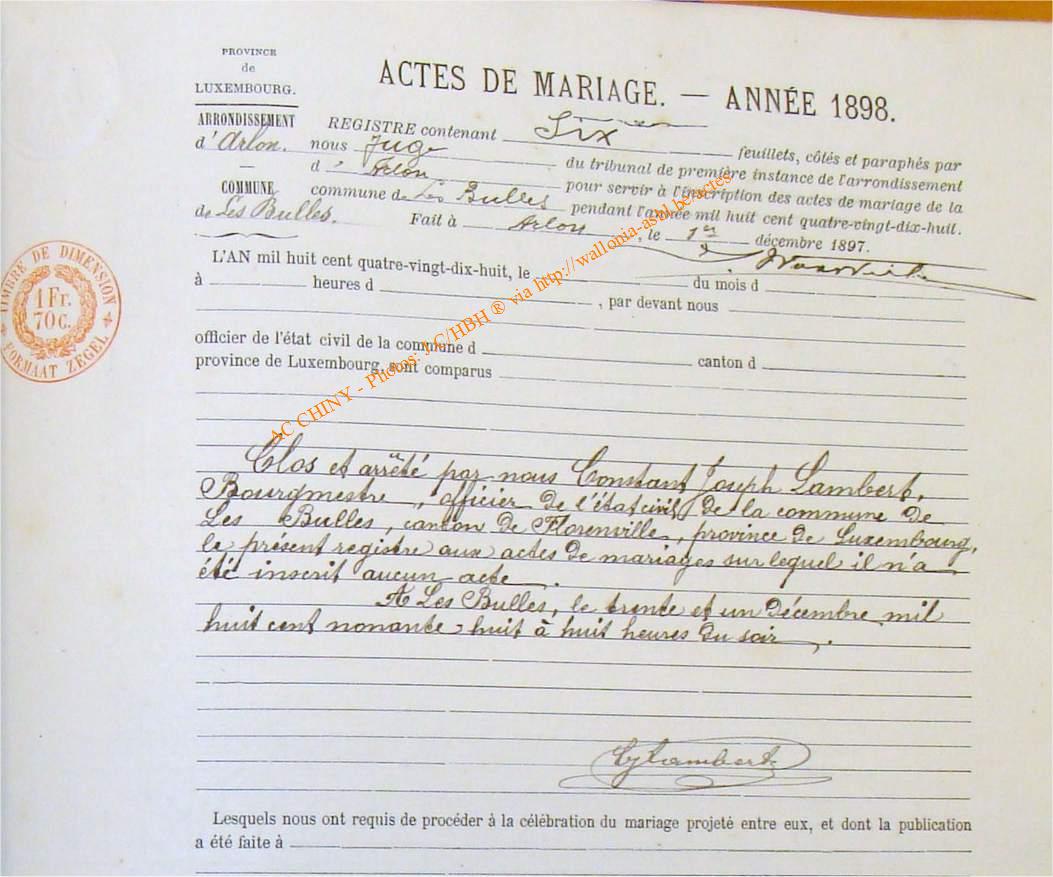 PROVINCE
de
LUXEMBOURG.
ARRONDISSEMENT
d'Arlon.
COMMUNE
de Les Bulles.
ACTES DE MARIAGE. — ANNÉE 1898.
REGISTRE contenant Six feuillets, côtés et paraphés par
nous Juge du tribunal de première instance de l'arrondissement
d'Arlon pour servir à l'inscription des actes de mariage de la
commune de Les Bulles pendant l'année mil huit cent quatre-vingt-dix-huit.
Fait à Arlon, le 1er décembre 1897.
L'AN mil huit cent quatre-vingt-dix-huit, le du mois d
à heures d , par devant nous
officier de l'état civil de la commune d canton d
province de Luxembourg, sont comparus
Clos et arrêté par nous Constant Joseph Lambert,
Bourgmestre, officier de l'état civil de la commune de
Les Bulles, canton de Florenville, province de Luxembourg,
le présent registre aux actes de mariages sur lequel il n'a
été inscrit aucun acte.
A Les Bulles, le trente et un Décembre mil
huit cent nonante-huit à huit heures du soir.
CJLambert
Lesquels nous ont requis de procéder à la célébration du mariage projeté entre eux, et dont la publication
a été faite à
TIMBRE DE DIMENSION
1 Fr.
70 c.
FORMAAT ZEGEL
AC CHINY - Photos: J.C/HBH ® via http://wallonia-asbl.be/actes